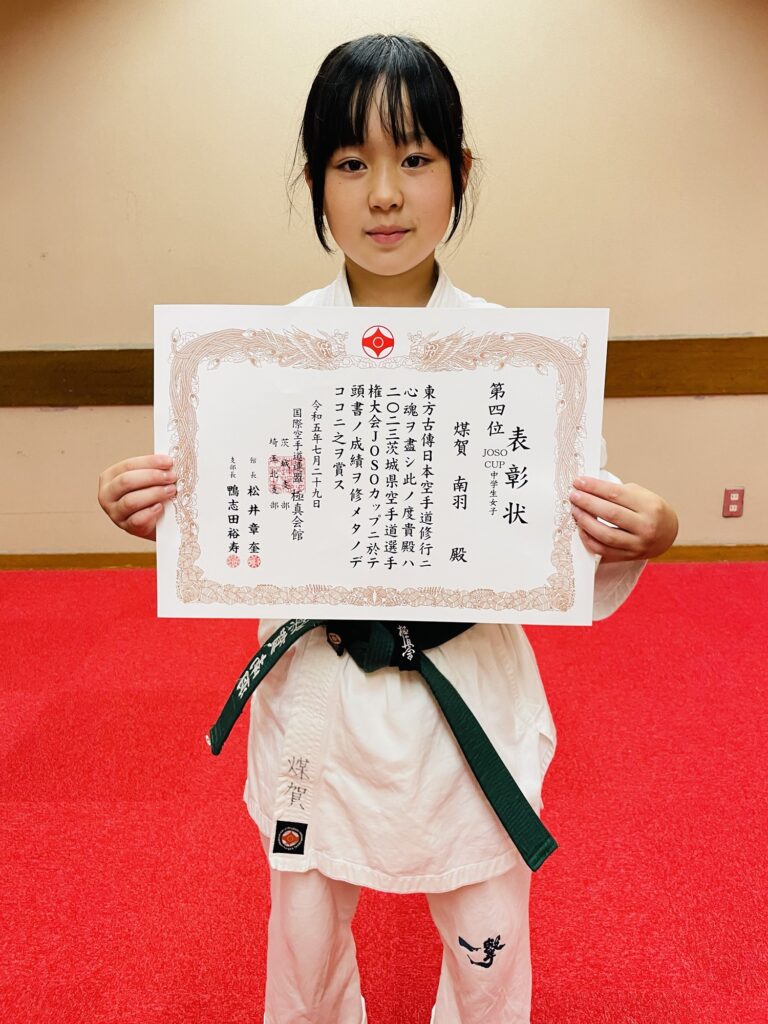 表彰状
第四位
JOSO
CUP
中学生女子
煤賀 南羽 殿
東方古傳日本空手道修行ニ
心魂ヲ盡シ此ノ度貴殿ハ
二〇二三茨城県空手道選手
権大会JOSOカップニ於テ
頭書ノ成績ヲ修メタノデ
ココニ之ヲ賞ス
令和五年七月二十九日
国際空手道連盟極真会館
茨城支部
埼玉北支部
館長 松井章奎
支部長 鴨志田裕寿
極真会
煤賀
一撃